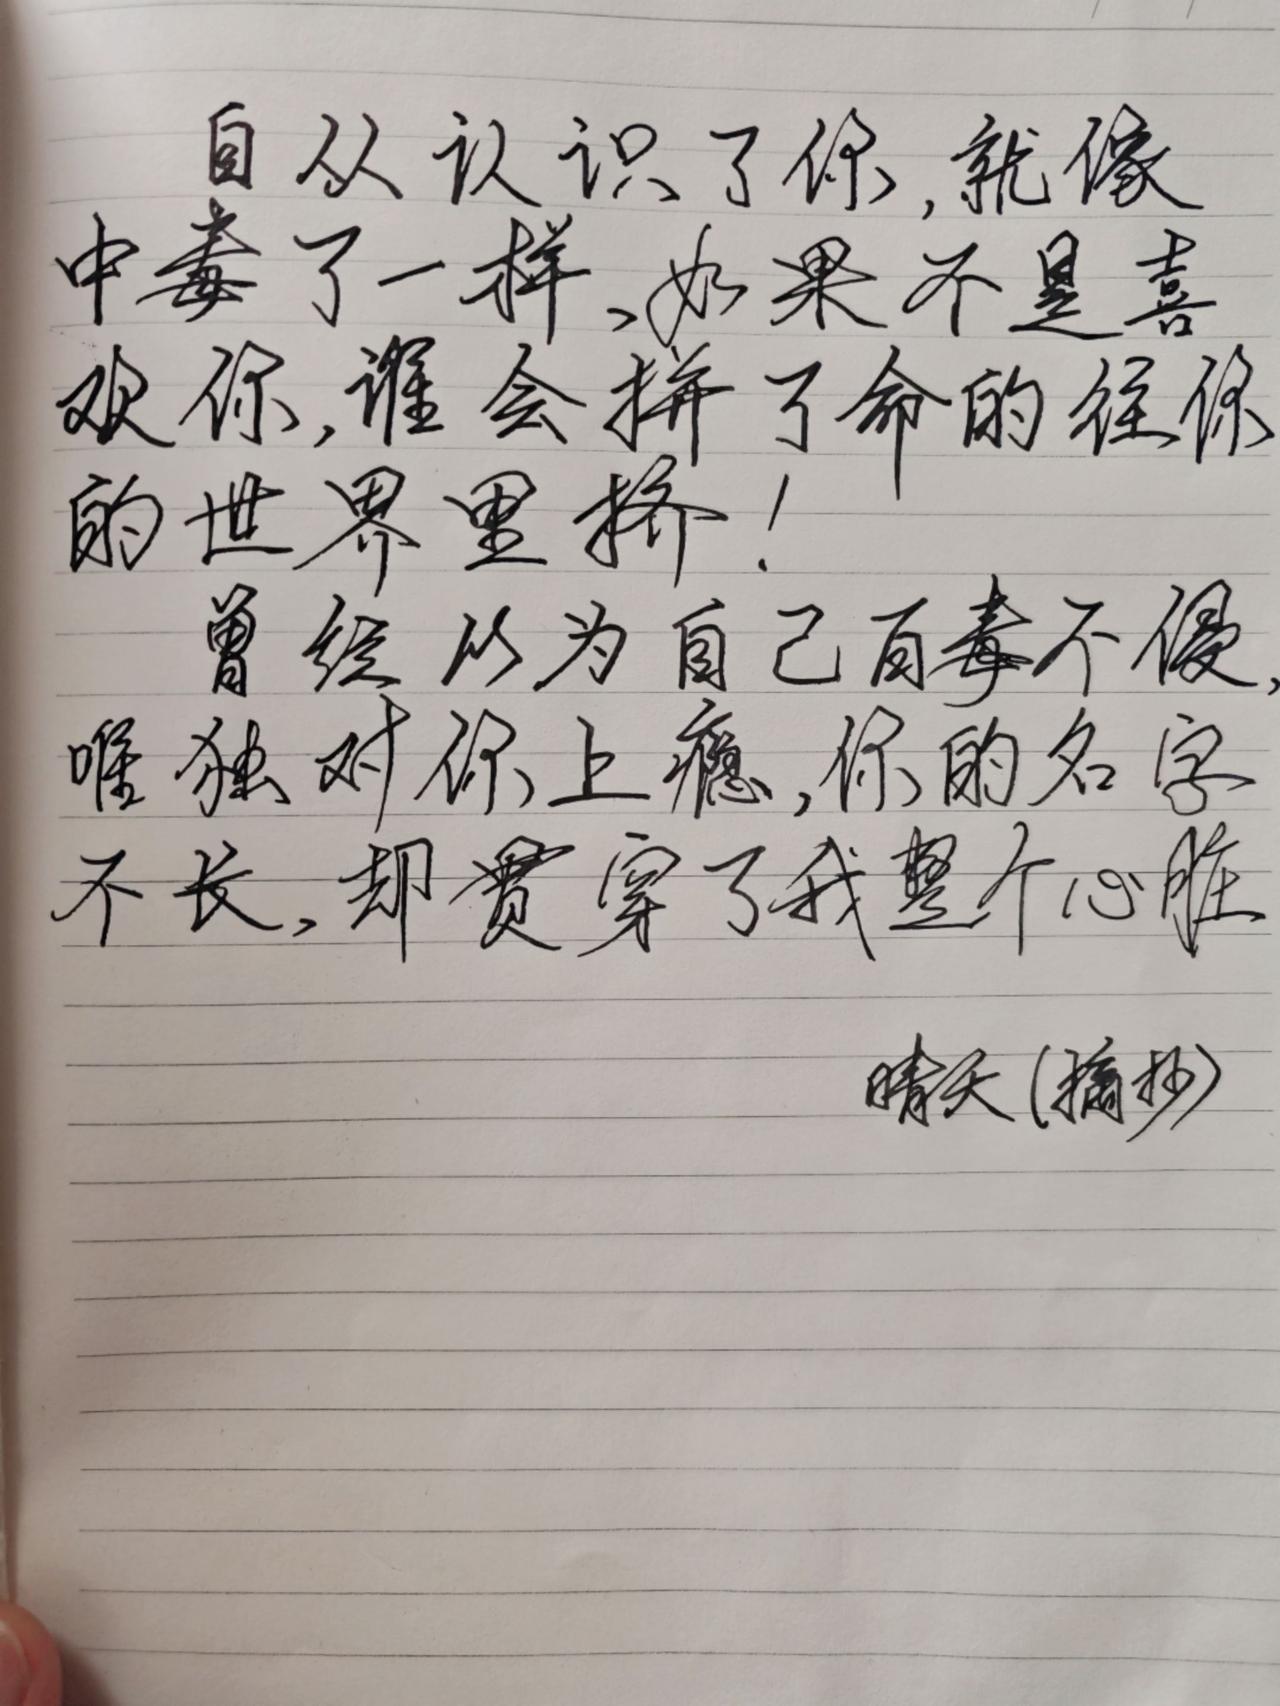 自从认识了你,就像
中毒了一样、如果不是喜
欢你,谁会拼了命的往你
的世界里挤!
曾经以为自己百毒不侵,
唯独对你上瘾,你的名字
不长,却贯穿了我整个心脏
晴天(摘抄)